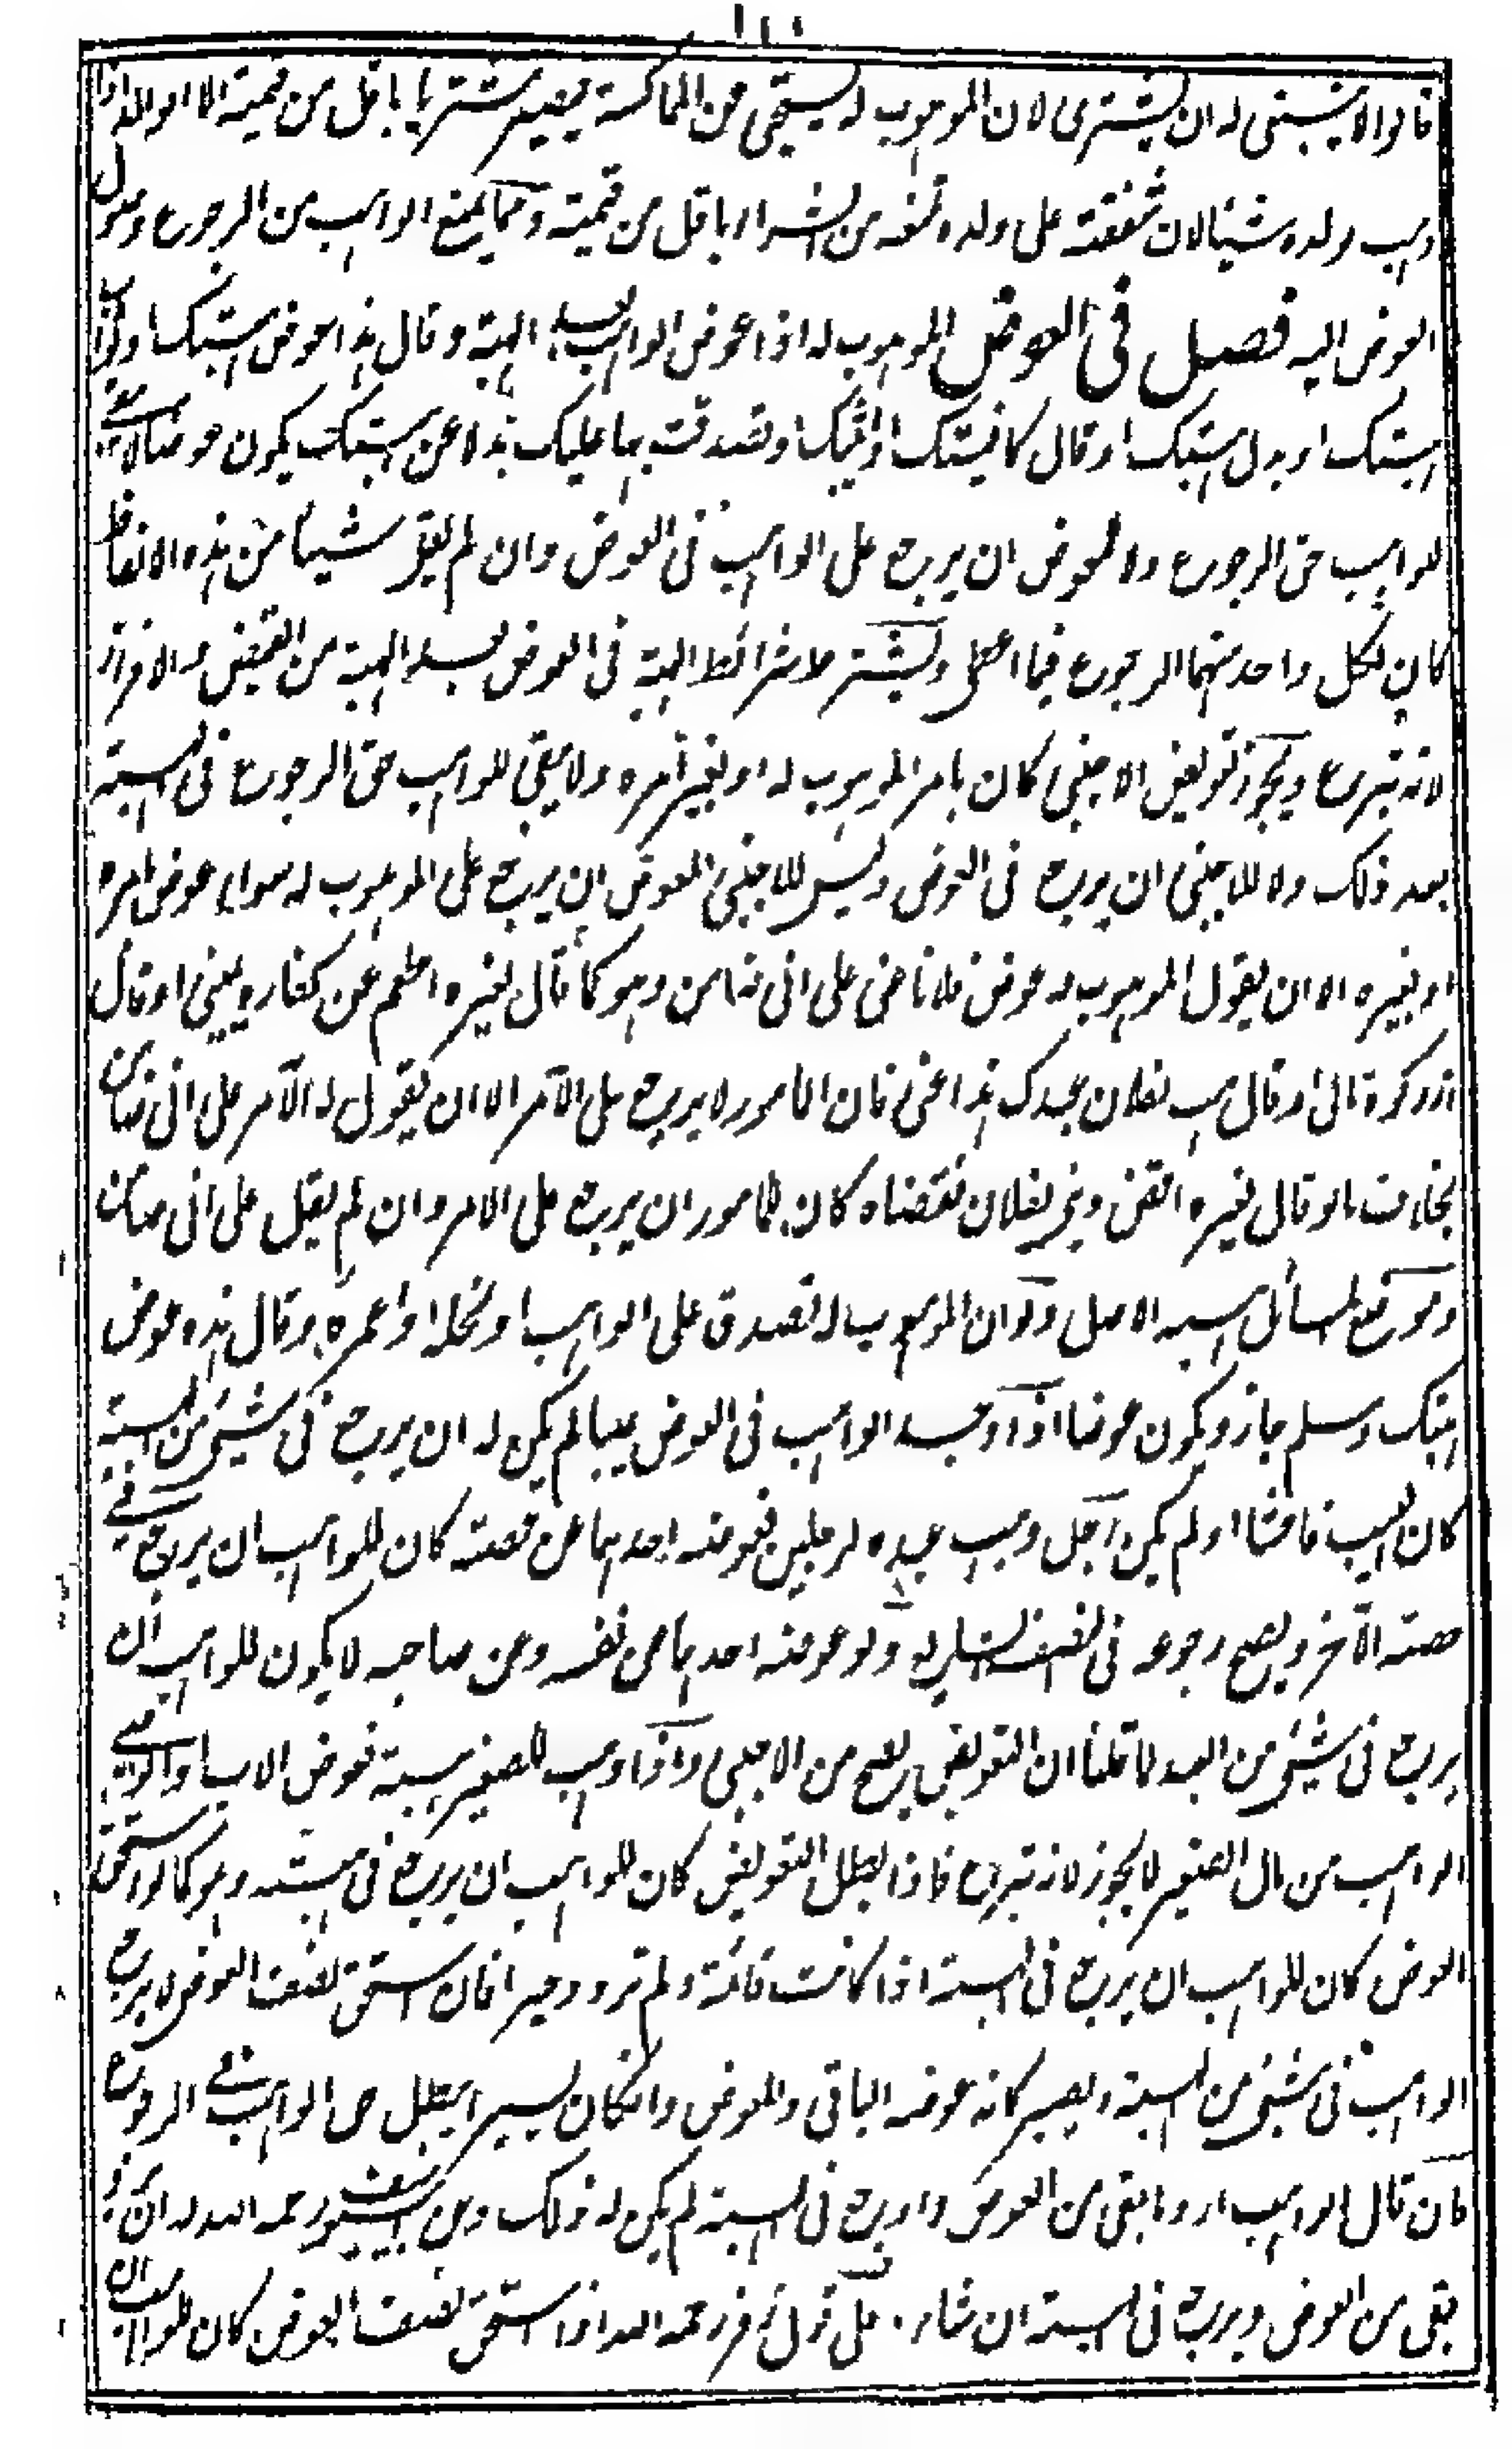 ١١٠
قالوا لا ينبغي له ان يشتري لان الموهوب له يستحيي عن المماكسة فيصير مشتريا باقل من قيمته الا الوالد اذا
وهب لولده شيئا لان شفقته على ولده تمنعه من الشراء باقل من قيمته ومما يمنع الواهب من الرجوع وصول
العوض اليه فصل في العوض الموهوب له اذا عوض الواهب بعد الهبة وقال هذا عوض هبتك او ثواب
هبتك او بدل هبتك او قال كافيتك او اثبتك او تصدقت بها عليك بدلا عن هبتك يكون عوضا لا يبقى
للواهب حق الرجوع ولا للمعوض ان يرجع على الواهب في العوض وان لم يقل شيئا من هذه الالفاظ
كان لكل واحد منهما الرجوع فيما اعطى ويشترط شرائط الهبة في العوض بعد الهبة من القبض والافراز
لانه تبرع ويجوز تعويض الاجنبي كان بامر الموهوب له او بغير امره ولا يبقى للواهب حق الرجوع في الهبة
بعد ذلك ولا للاجنبي ان يرجع في العوض وليس للاجنبي المعوض ان يرجع على الموهوب له سواء عوض بامره
او بغيره الا ان يقول الموهوب له عوض فلانا عني على اني ضامن وهو كما قال لغيره اطعم عن كفارة يميني او قال
اد زكوة مالي او قال هب لفلان عبدك هذا عني فان المامور لا يرجع على الآمر الا ان يقول له الآمر على اني ضامن
بخلاف ما لو قال لغيره اقض ديني لفلان فقضاه كان للمامور ان يرجع على الامر وان لم يقل على اني ضامن
وموضع المسائل هبة الاصل ولو ان الموهوب له تصدق على الواهب او نحله او اعمره وقال هذه عوض
هبتك وسلم جاز ويكون عوضا اذا وجد الواهب في العوض عيبا لم يكن له ان يرجع في شيئ من الهبة
كان العيب فاحشا او لم يكن رجل وهب عبده لرجلين فعوضه احدهما عن حصته كان للواهب ان يرجع في
حصته الآخر ويصح رجوعه في النصف الشايع ولو عوضه احدهما عن نفسه وعن صاحبه لا يكون للواهب ان
يرجع في شيئ من العبد لما قلنا ان التعويض يصح من الاجنبي واذا وهب للصغير هبة فعوض الاب او الوصي
الواهب من مال الصغير لا يجوز لانه تبرع فاذا بطل التعويض كان للواهب ان يرجع في هبته وهو كما لو استحق
العوض كان للواهب ان يرجع في الهبة اذا كانت قائمة ولم تزدد خيرا فان استحق نصف العوض لا يرجع
الواهب في شيئ من الهبة ويصير كانه عوضه الباقي والمعوض وان كان يسيرا يبطل حق الواهب في الرجوع
فان قال الواهب ارد ما بقي من العوض وارجع في الهبة لم يكن له ذلك وعن ابي يوسف رحمه الله له ان يرد ما
بقي من العوض ويرجع في الهبة ان شاء. على قول زفر رحمه الله اذا استحق نصف العوض كان للواهب ان